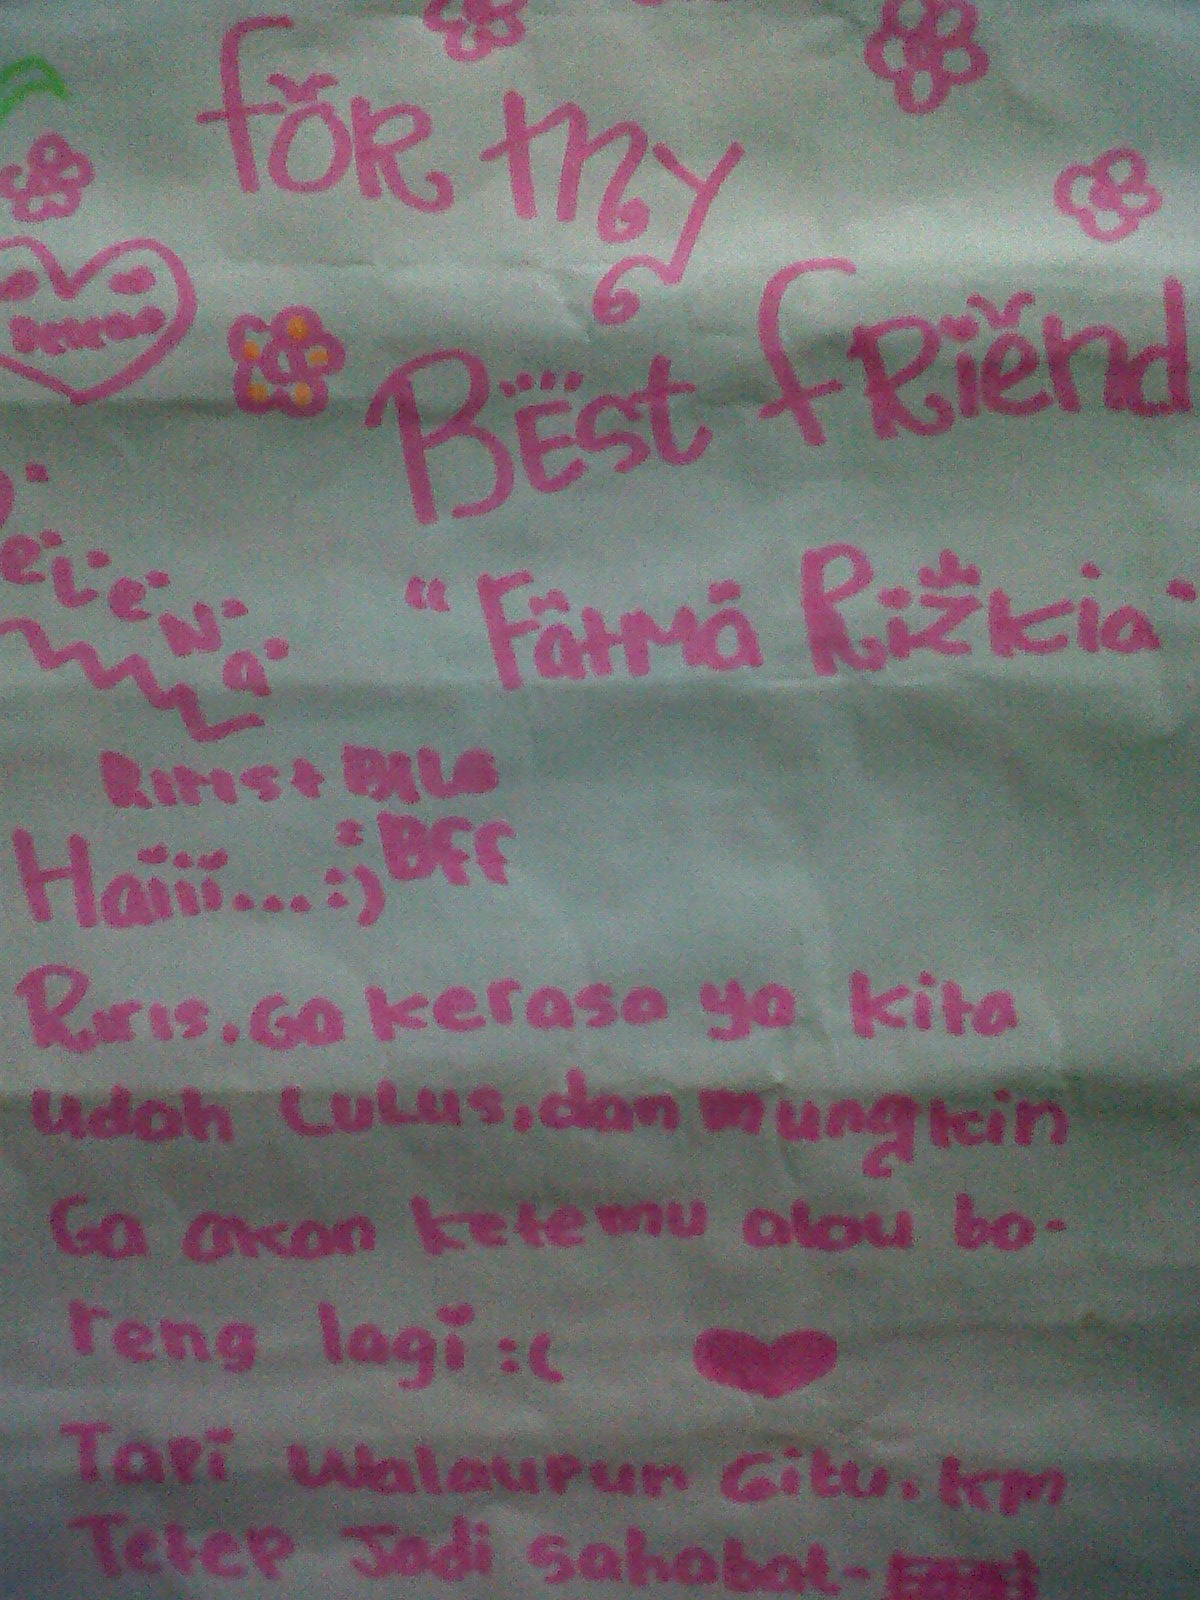 For my
Best Friend
"Fatma Rizkia"
elena
Riris + Bila
= BFF
Haiii....:)
Riris. Ga kerasa ya kita
udah lulus. dan mungkin
Ga akan ketemu atau ba-
reng lagi :(
Tapi walaupun Gitu. km
Tetep Jadi sahabat-